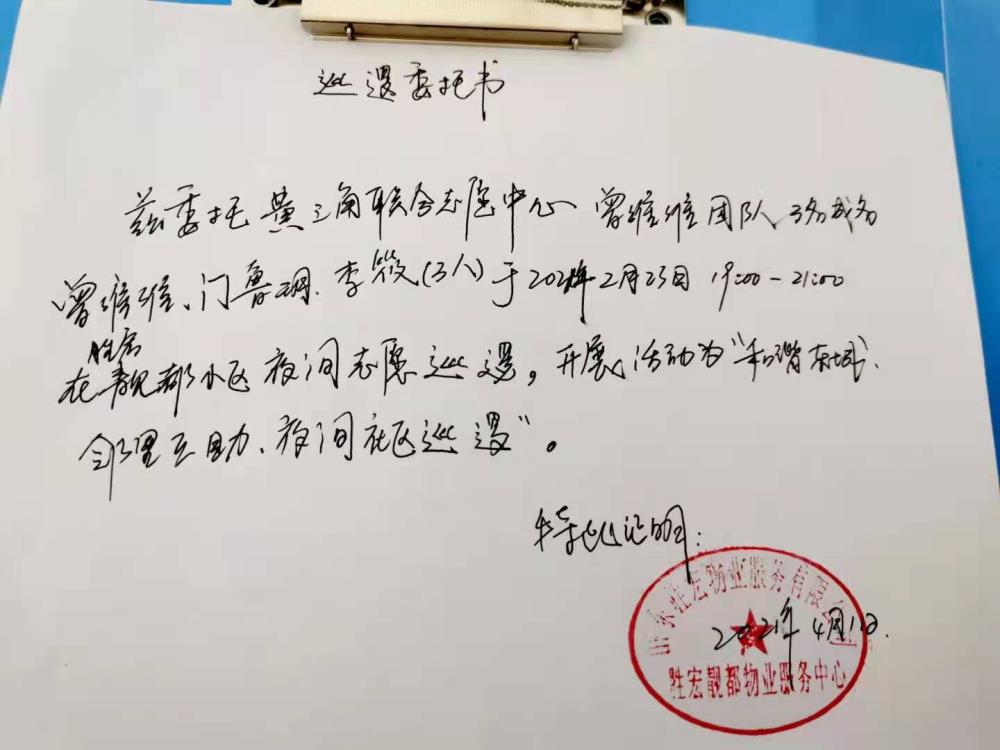 巡逻委托书
兹委托黄三角联合志愿中心 曾维维团队 3名成员
曾维维、门鲁珊、李筱(3人)于2021年2月23日 19:00-21:00
胜宏
在靓都小区夜间志愿巡逻,开展活动为"和谐东城、
邻里互助、夜间社区巡逻"。
特此证明:
山东胜宏物业服务有限公司
2021年4月1日.
胜宏靓都物业服务中心